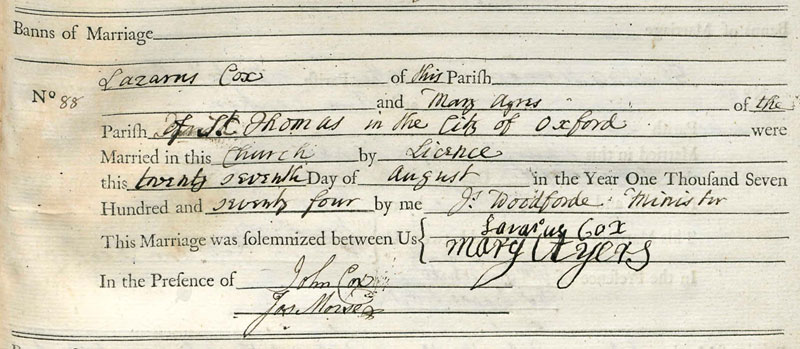 Banns of Marriage
Lazarus Cox of this Parish
No 88
and Mary Ayres of the
Parish of St. Thomas in the City of Oxford were
Married in this Church by Licence
this twenty seventh Day of August in the Year One Thousand Seven
Hundred and seventy four by me Js. Woodforde Minister
This Marriage was solemnized between Us { Lazarus Cox
Mary Ayers
In the Presence of John Cox
Jos Morse